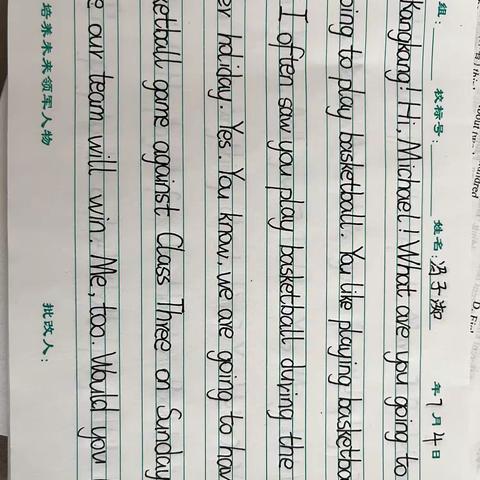 组: 校标号: 姓名: 年7月4日
kangkang! Hi, Michael! What are you going to
oing to play basketball. You like playing basketba
I often saw you play basketball during the
er holiday. Yes. You know, we are going to hav
ketball game against Class Three on Sunday
e our team will win. Me, too. Would you
培养未来领军人物 批改人: